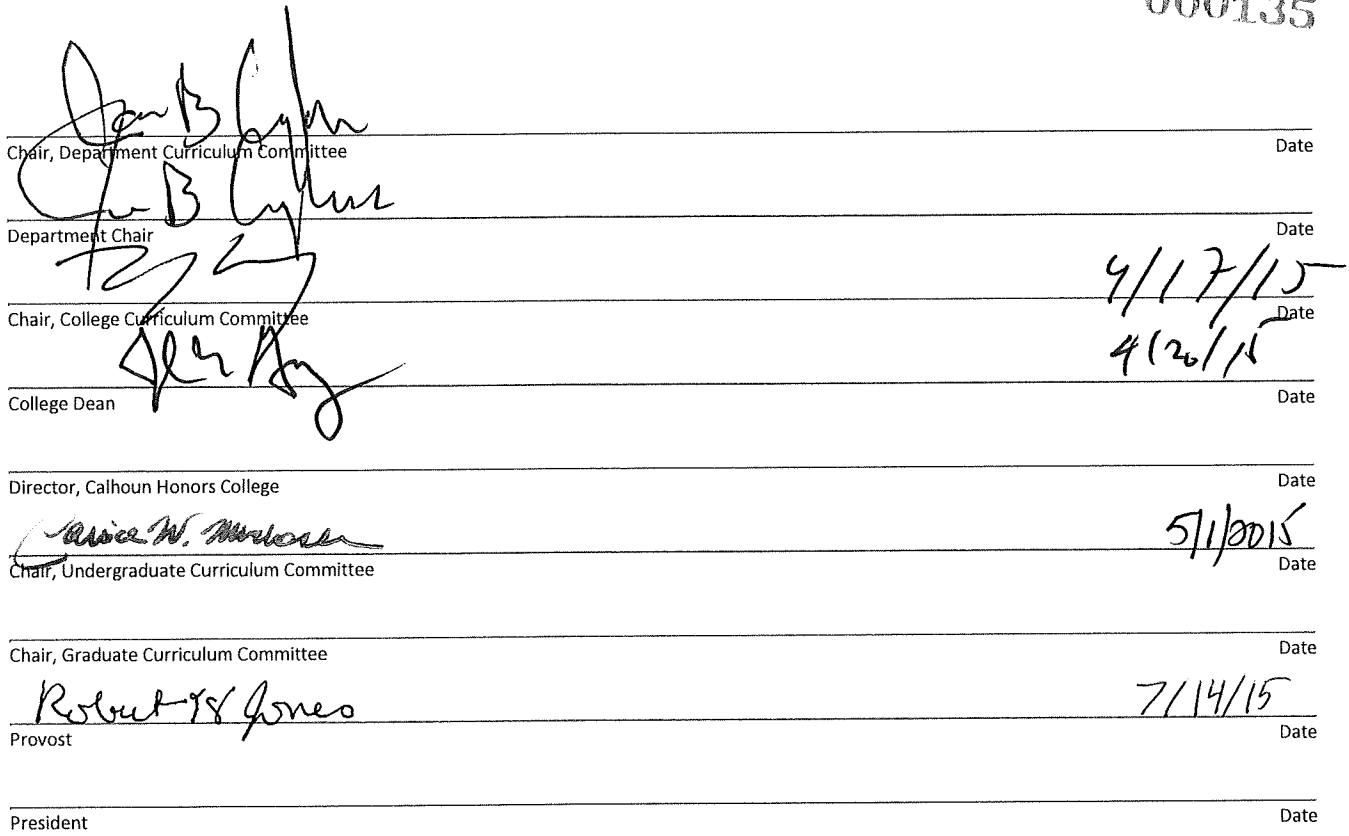 000135
Chair, Department Curriculum Committee Date
B
Department Chair Date
4/17/15
Chair, College Curriculum Committee Date
4/20/15
College Dean Date
Director, Calhoun Honors College Date
W. 5/1/2015
Chair, Undergraduate Curriculum Committee Date
Chair, Graduate Curriculum Committee Date
Robert Jones 7/14/15
Provost Date
President Date